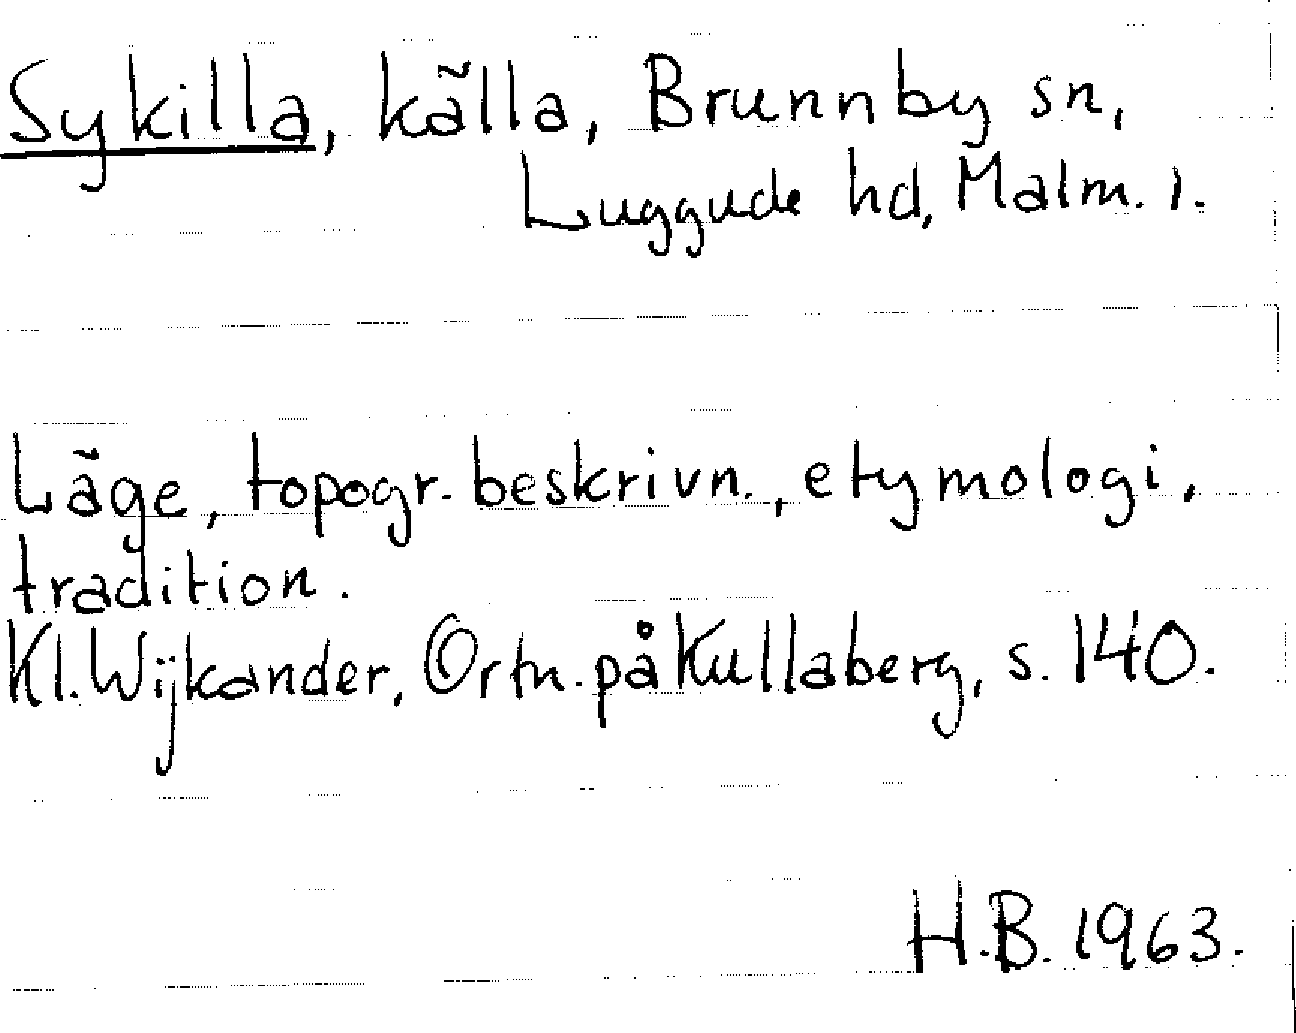 Sykilla, källa, Brunnby sn,
Luggude hd, Malm. l.
Läge, topogr. beskrivn., etymologi,
tradition.
Kl. Wijkander, Ortn. på Kullaberg, s. 140.
H.B. 1963.